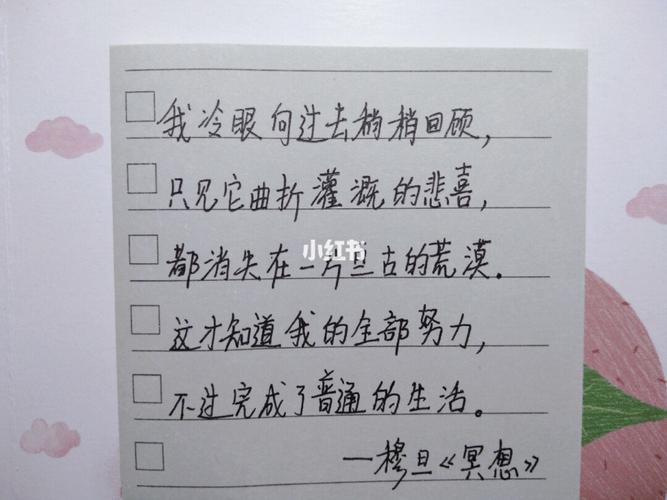 我冷眼向过去稍稍回顾，
只见它曲折灌溉的悲喜，
都消失在一片亘古的荒漠．
这才知道我的全部努力，
不过完成了普通的生活。
一穆旦《冥想》
小红书